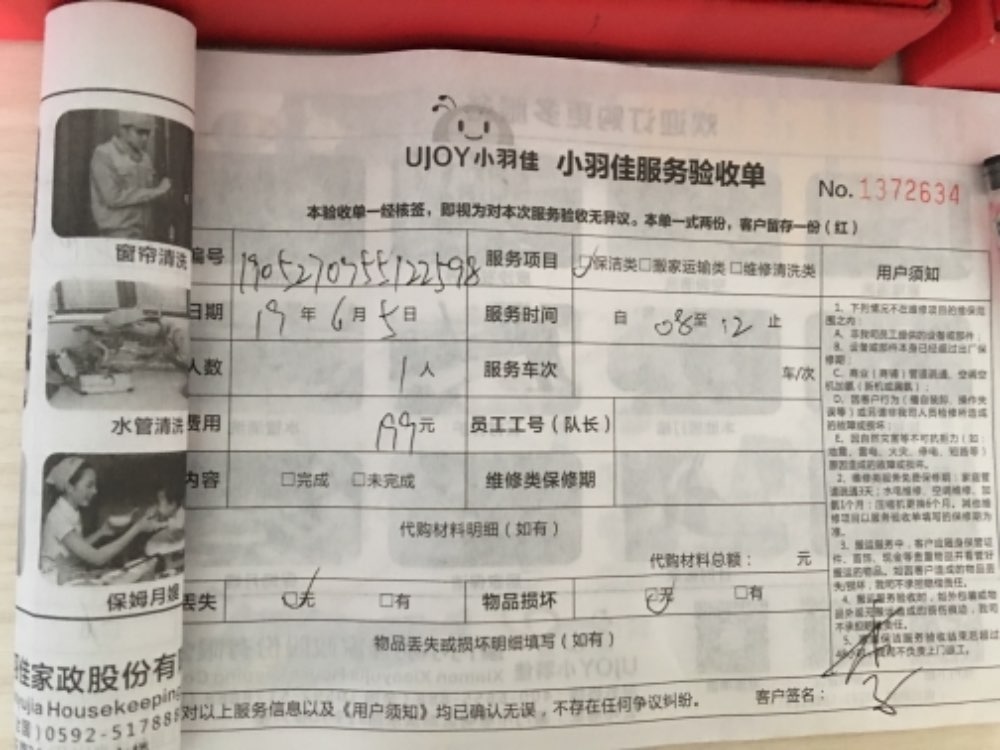 UJOY小羽佳 小羽佳服务验收单
No. 1372634
本验收单一经核签，即视为对本次服务验收无异议。本单一式两份，客户留存一份（红）
编号 1905270955122598 服务项目 □保洁类□搬家运输类□维修清洗类 用户须知
日期 19年6月5日 服务时间 自 08至12止
人数 1人 服务车次 车/次
费用 199元 员工工号（队长）
内容 □完成 □未完成 维修类保修期
代购材料明细（如有）
代购材料总额： 元
丢失 □无 □有 物品损坏 □无 □有
物品丢失或损坏明细填写（如有）
对以上服务信息以及《用户须知》均已确认无误，不存在任何争议纠纷。 客户签名：
1、下列情况不在维修项目的维保范
围之内：
A、非我司员工提供的设备或部件；
B、设备或部件本身已经超过出厂保
修期；
C、商业（商铺）管道疏通、空调空
机加氨（拆机或漏氨）；
D、因客户行为（擅自装卸、操作失
误等）或另请非我司人员检修所造成
的故障或损坏；
E、因自然灾害等不可抗力（如：
地震、雷电、火灾、停电、短路等）
原因造成的故障或损坏。
2、维修类服务免费保修期：家庭管
道疏通3天；水电维修、空调维修、加
氨1个月；压缩机更换6个月，其他维
修项目以服务验收单填写的保修期为
准。
3、搬运服务中，客户应随身保管证
件、首饰、现金等贵重物品并看管好
搬运的物品。如因客户造成的物品丢
失/损坏，我司不承担赔偿责任。
窗帘清洗
水管清洗
保姆月嫂
佳家政股份有
yujia Housekeeping
0592-517888